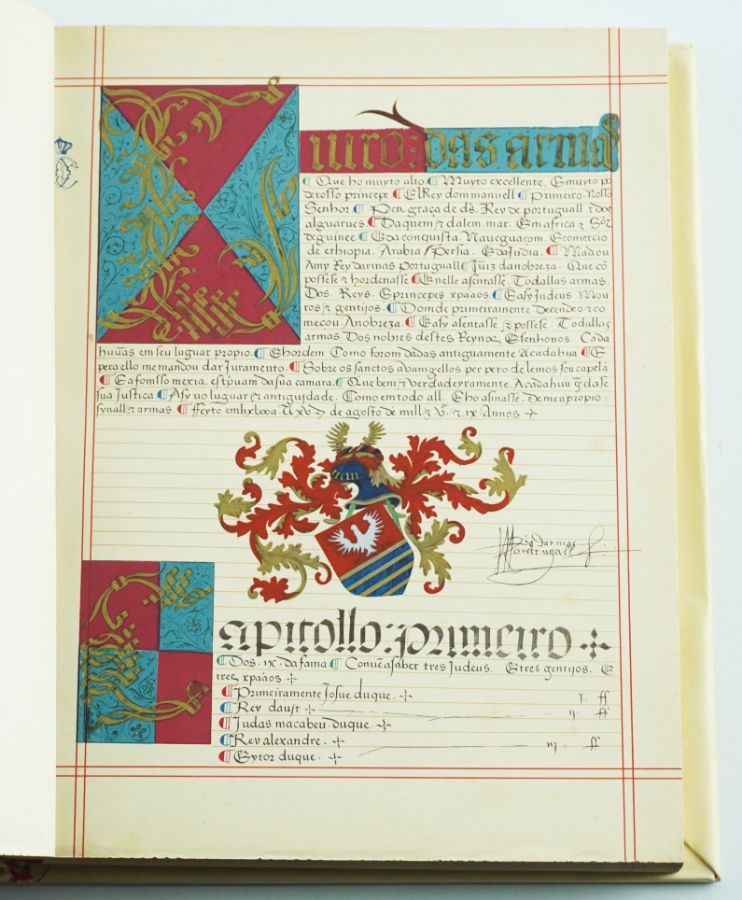 Liuro: das armas
¶ Que ho muyto alto ¶ Muyto excellente. E muyto po
deroso princepe ¶ El Rey dom manuell ¶ Primeiro. Nosso
Senhor ¶ Per graça de ds. Rey de portugall ⁊ dos
alguarues ¶ Daquem ⁊ dalem. mar. Em africa ⁊ Sor
de guinee. ¶ Da conquista. Naueguaçom. E comercio
de ethiopia. Arabia / Persia. E da Jndia. ¶ Mādou
Amy Rey darmas Portuguall ¶ Juiz da nobreza. Que cō
posesse ⁊ hordenasse ¶ E nelle asentasse. Todallas armas.
Dos. Reys. E princepes xpaãos ¶ E asy Judeus Mou
ros ⁊ gentijos. ¶ Domde primeiramente decendeo ⁊ co
mecou A nobreza. ¶ E asy asentasse ⁊ posese. Todallas
armas. Dos nobres destes Reynos E senhorios. Cada
huũas em seu luguar propio. ¶ E hordem Como forom dadas antiguamente A cada huũ ¶ E
pera ello me mandou dar Juramento. ¶ Sobre os sanctos avangellos per pero de lemos seu capelã
¶ E afomsso mexia. escripuam da sua camara. ¶ Que bem ⁊ verdadeyramente. A cada huũ da se
sua Justica ¶ Asy no luguar ⁊ antiguidade. Como em todo all. E ho asinasse. de meu propio
synall ⁊ armas. ¶ ffeyto em lixboa A xv de agosto de mill ⁊ Vc. ⁊ ix. Annos
Rey darmas
Portugall
Capitollo: primeiro
¶ Dos. ix. da fama ¶ Conuẽ a saber tres Judeus. E tres gentijos. E
tres xpaãos
¶ Primeiramente Josue duque. j. ff
¶ Rey dauit ij. ff
¶ Judas macabeu duque.
¶ Rey alexandre. iij. ff
¶ Eytor duque.